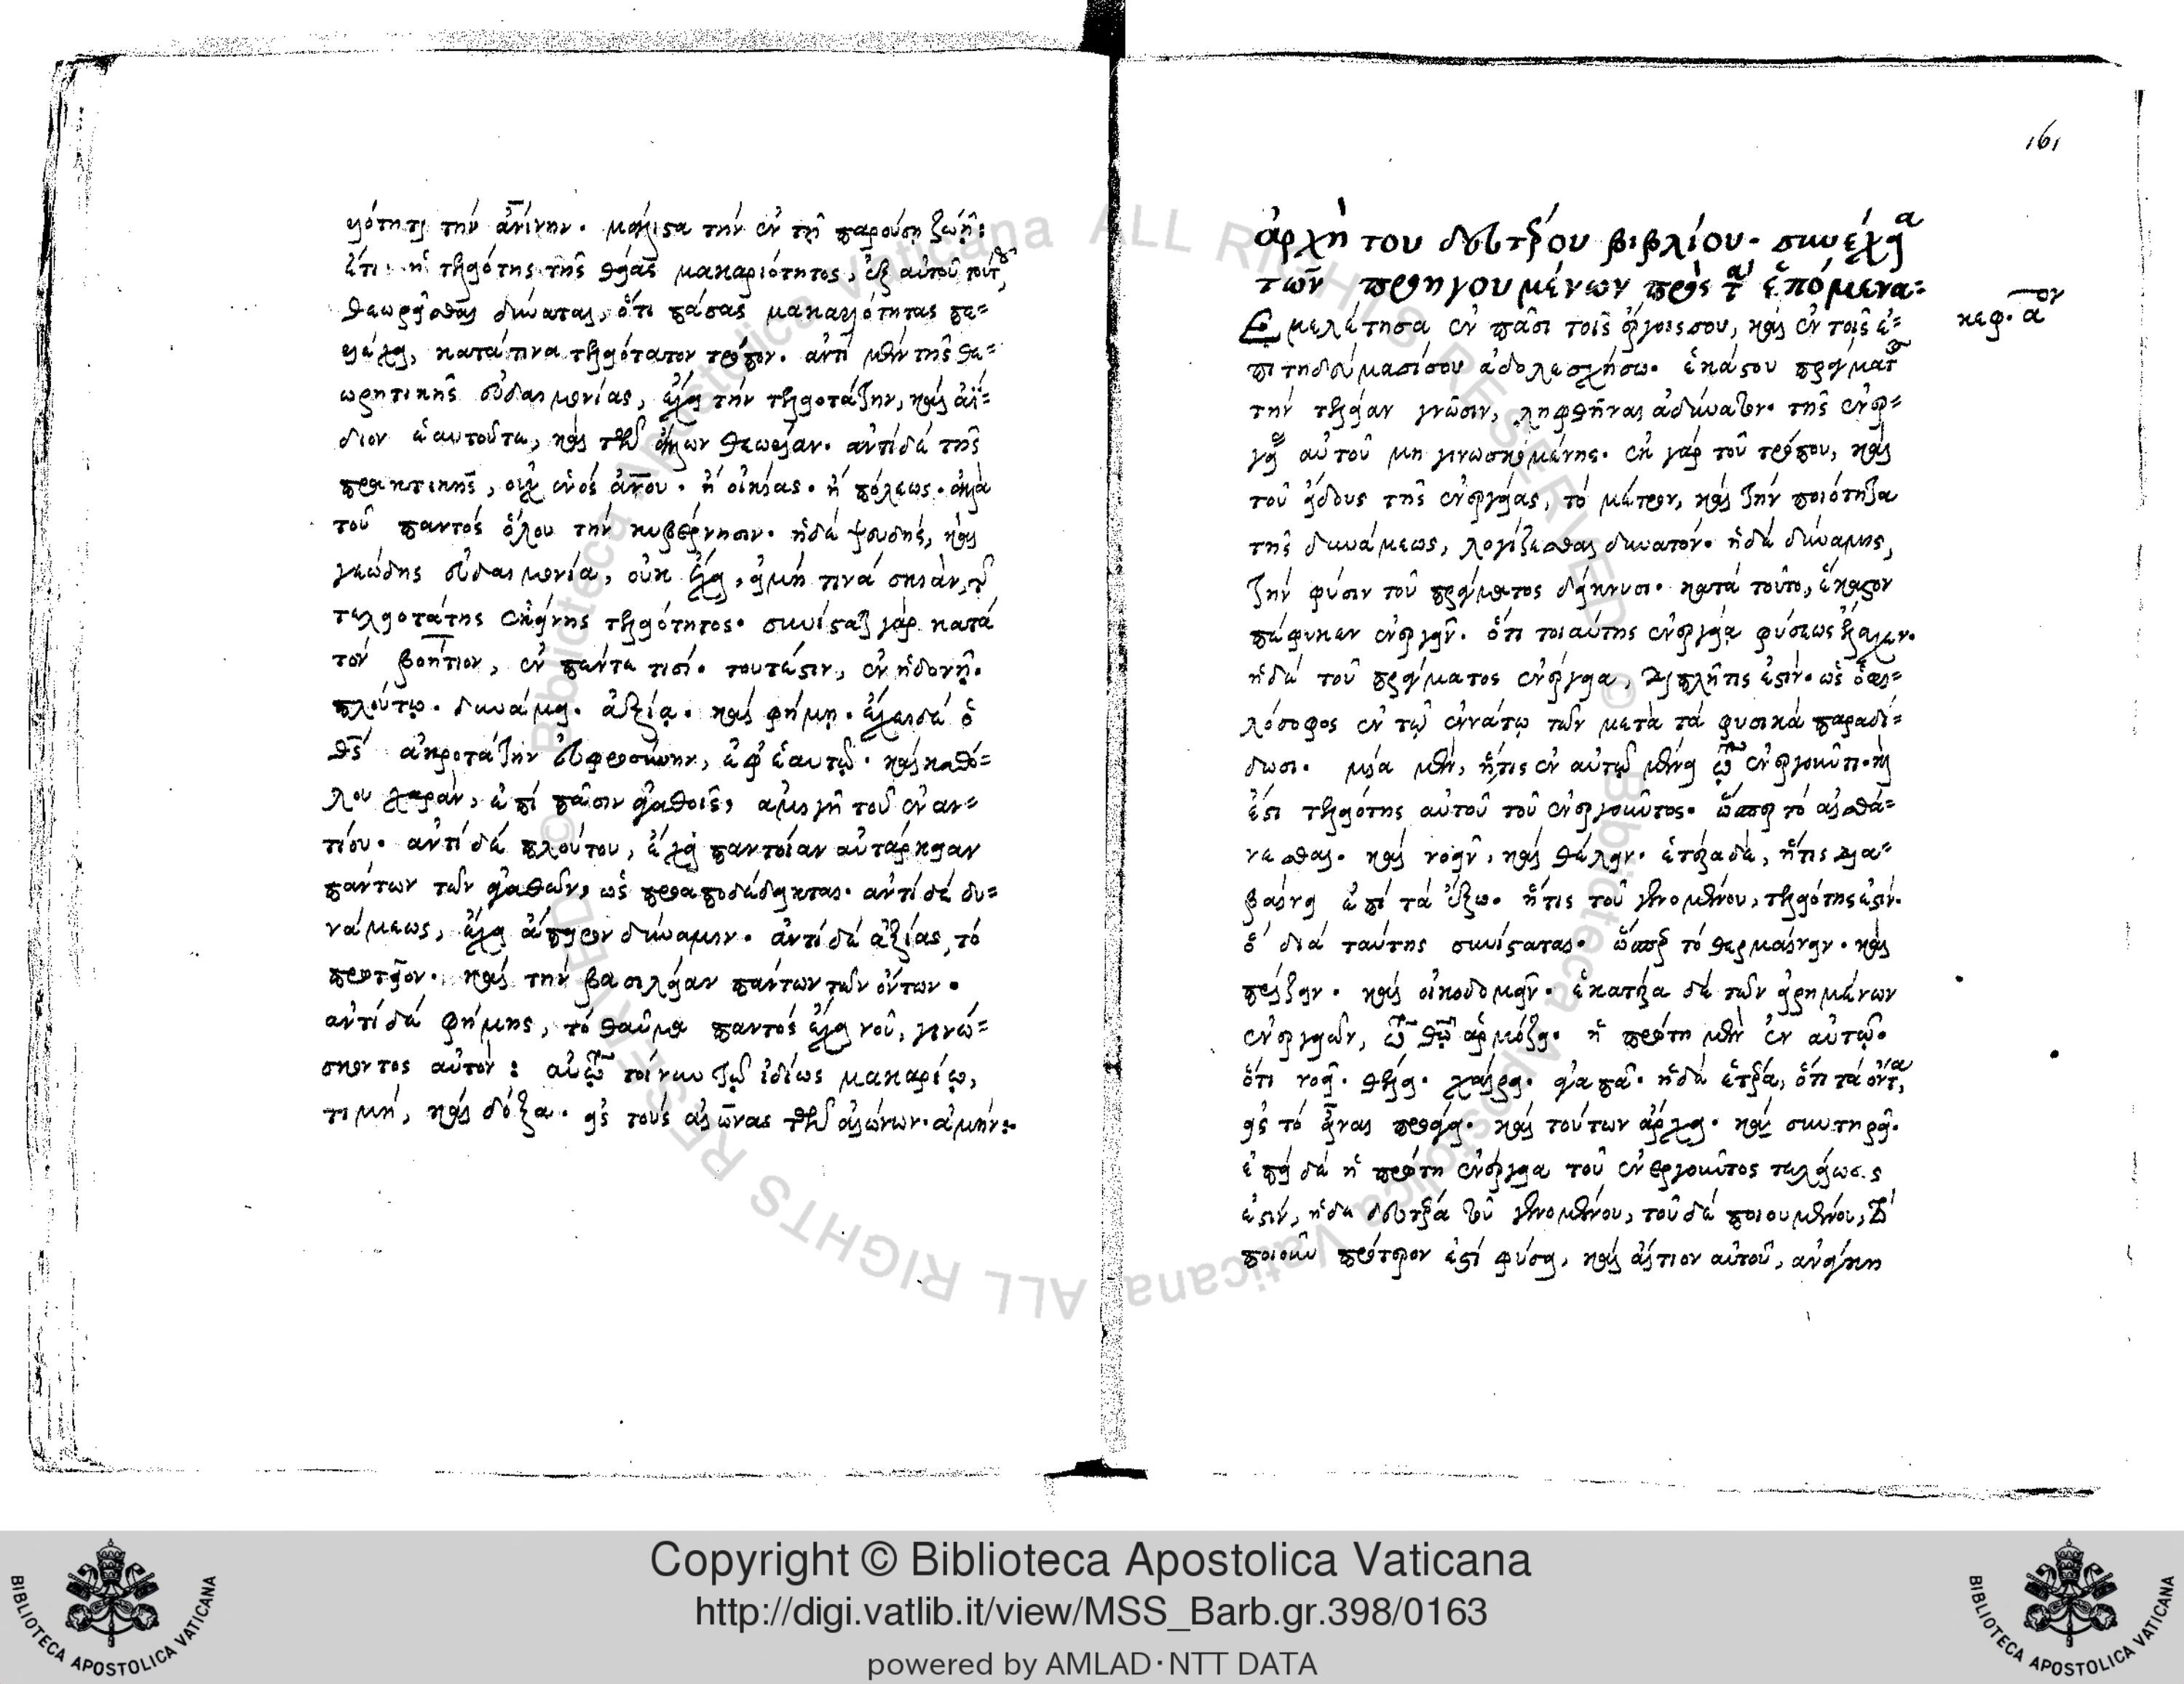 ριότητι τὴν ἀνίνην. μάλιστα τὴν ἐν τῇ παρούσῃ ζωῇ:
ἔτι ἡ τελειότης τῆς θείας μακαριότητος, ἐξ αὐτοῦ τούτου
θεωρεῖσθαι δύναται, ὅτι πάσας μακαριότητας πε=
ριέχει, κατά τινα τελειότατον τρόπον. ἀντὶ μὲν τῆς θε=
ωρητικῆς εὐδαιμονίας, ἔχει τὴν τελειοτάτην, καὶ ἀΐ=
διον ἑαυτοῦτε, καὶ τῶν ἄλλων θεωρίαν. ἀντὶ δὲ τῆς
πρακτικῆς, οὐχ ἑνὸς ἀνου. ἢ οἰκίας. ἢ πόλεως. ἀλλὰ
τοῦ παντὸς ὅλου τὴν κυβέρνησιν. ἡ δὲ ψευδὴς, καὶ
γεώδης εὐδαιμονία, οὐκ ἔχει, εἰ μή τινα σκιὰν, τῆς
τελειοτάτης ἐκείνης τελειότητος. συνίσταται γὰρ κατὰ
τὸν βοήτιον, ἐν πέντε τισί. τουτέστιν, ἐν ἡδονῇ.
πλούτῳ. δυνάμει. ἀξίᾳ. καὶ φήμῃ. ἔχει δὲ ὁ
θς ἀκροτάτην εὐφροσύνην, ἐφ' ἑαυτῷ. καὶ καθό=
λου χαρὰν, ἐπὶ πᾶσιν ἀγαθοῖς, ἀμιγῆ τοῦ ἐναν=
τίου. ἀντὶ δὲ πλούτου, ἔχει παντοίαν αὐτάρκειαν
πάντων τῶν ἀγαθῶν, ὡς προαποδέδεικται. ἀντὶ δὲ δυ=
νάμεως, ἔχει ἄπειρον δύναμιν. ἀντὶ δὲ ἀξίας, τὸ
πρωτεῖον. καὶ τὴν βασιλείαν πάντων τῶν ὄντων.
ἀντὶ δὲ φήμης, τὸ θαῦμα παντὸς ἔχει νοῦ, γινώ=
σκοντος αὐτόν: αὐτῷ τοίνυν τῷ ἰδίως μακαρίῳ,
τιμὴ, καὶ δόξα. εἰς τοὺς αἰῶνας τῶν αἰώνων. ἀμήν:
161
ἀρχὴ του δευτέρου βιβλίου. συνέχεια
τῶν προηγουμένων πρὸς τὰ ἑπόμενα:
κεφ. α ον
Ἐμελέτησα ἐν πᾶσι τοῖς ἔργοις σου, καὶ ἐν τοῖς ἐ=
πιτηδεύμασί σου ἀδολεσχήσω. ἑκάστου πράγματος
τὴν τελείαν γνῶσιν, ληφθῆναι ἀδύνατον. τῆς ἐνερ=
γείας αὐτοῦ μὴ γινωσκομένης. ἐκ γὰρ τοῦ τρόπου, καὶ
τοῦ εἴδους τῆς ἐνεργείας, τὸ μέτρον, καὶ τὴν ποιότητα
τῆς δυνάμεως, λογίζεσθαι δυνατόν. ἡ δὲ δύναμις,
τὴν φύσιν τοῦ πράγματος δείκνυσι. κατὰ τοῦτο, ἕκαστον
πέφυκεν ἐνεργεῖν. ὅτι τοιαύτης ἐνεργείᾳ φύσεως ἔλαχεν.
ἡ δὲ τοῦ πράγματος ἐνέργεια, διπλῆ τις ἐστίν. ὡς ὁ φι=
λόσοφος ἐν τῷ ἐννάτῳ τῶν μετὰ τὰ φυσικὰ παραδί=
δωσι. μία μὲν, ἥτις ἐν αὐτῷ μένει τῷ ἐνεργοῦντι. καὶ
ἔστι τελειότης αὐτοῦ τοῦ ἐνεργοῦντος. ὥσπερ τὸ αἰσθά=
νεσθαι. καὶ νοεῖν, καὶ θέλειν. ἑτέρα δὲ, ἥτις δια=
βαίνει ἐπὶ τὰ ἔξω. ἥτις τοῦ γινομένου, τελειότης ἐστίν.
ὃ διὰ ταύτης συνίσταται. ὥσπερ τὸ θερμαίνειν. καὶ
πρίζειν. καὶ οἰκοδομεῖν. ἑκατέρα δὲ τῶν εἰρημένων
ἐνεργειῶν, τῷ θῷ ἁρμόζει. ἡ πρώτη μὲν ἐν αὐτῷ.
ὅτι νοεῖ. θέλει. χαίρει. ἀγαπᾷ. ἡ δὲ ἑτέρα, ὅτι τὰ ὄντα,
εἰς τὸ εἶναι προάγει. καὶ τούτων ἄρχει. καὶ συντηρεῖ.
ἐπεὶ δὲ ἡ πρώτη ἐνέργεια τοῦ ἐνεργοῦντος τελείωσις
ἐστὶν, ἡ δὲ δευτέρα τοῦ γινομένου, τοῦ δὲ ποιουμένου, τὸ
ποιοῦν πρότερον ἐστὶ φύσει, καὶ αἴτιον αὐτοῦ, ἀνάγκη
Copyright © Biblioteca Apostolica Vaticana
http://digi.vatlib.it/view/MSS_Barb.gr.398/0163
powered by AMLAD·NTT DATA
BIBLIOTECA APOSTOLICA VATICANA
BIBLIOTECA APOSTOLICA VATICANA